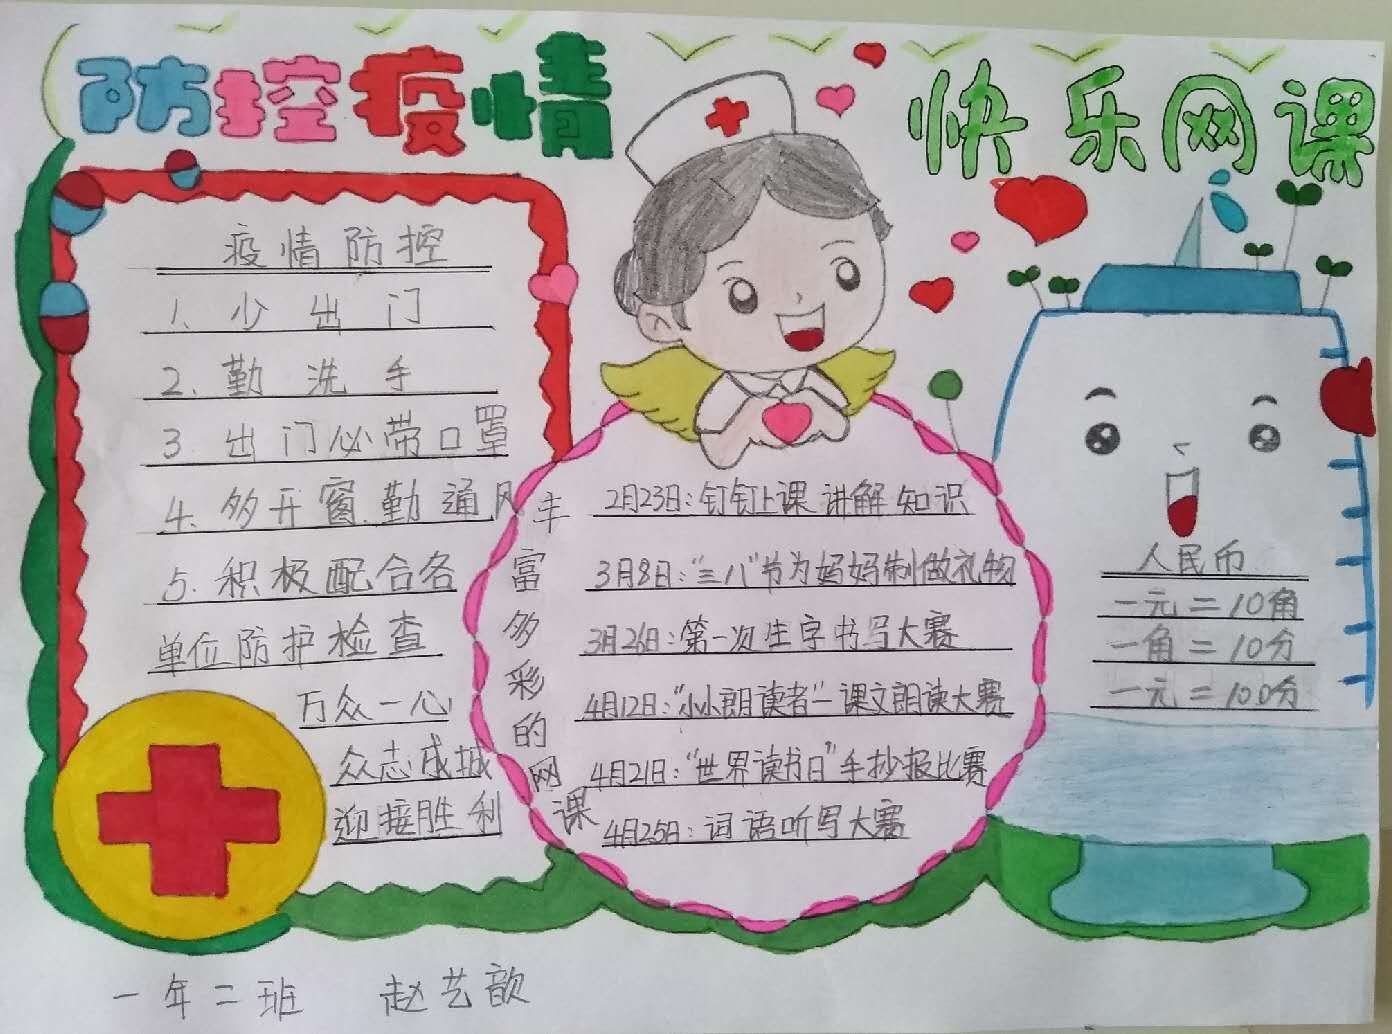 防控疫情
快乐网课
疫情防控
1、少出门
2、勤洗手
3、出门必带口罩
4、多开窗、勤通风
5、积极配合各
单位防护检查
万众一心
众志成城
迎接胜利
丰富多彩的网课
2月23日：钉钉上课讲解知识
3月8日：“三八”节为妈妈制做礼物
3月26日：第一次生字书写大赛
4月12日：“小小朗读者”一课文朗读大赛
4月21日：“世界读书日”手抄报比赛
4月25日：词语听写大赛
人民币
一元=10角
一角=10分
一元=100分
一年二班 赵艺歆